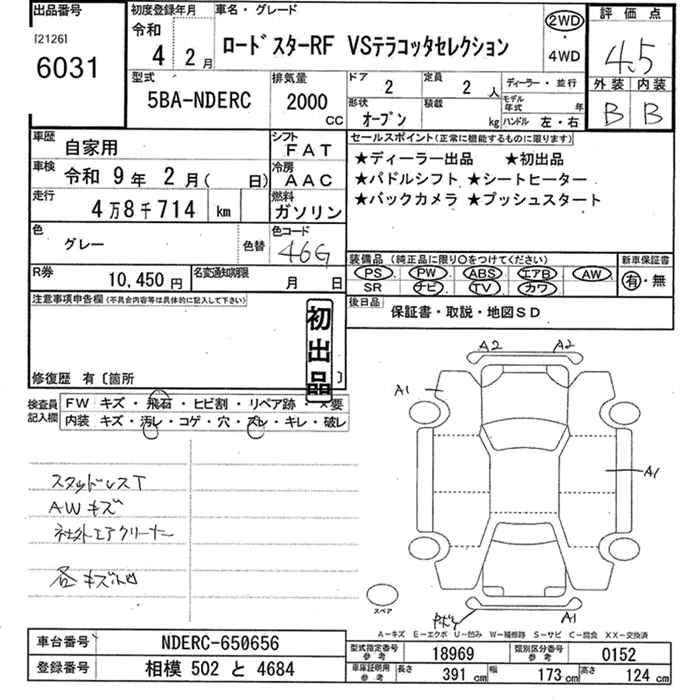 出品番号 初度登録年月 車名・グレード 評価点
[2126]
6031
令和 4 2月 ロードスターRF VSテラコッタセレクション 2WD・4WD 4.5
外装 内装
B B
型式 排気量 ドア 2 定員 2人 ディーラー・並行
5BA-NDERC 2000cc 形状 オープン 積載 kg モデル年式 年 ハンドル 左・右
車歴 自家用 シフト FAT セールスポイント(正常に機能するものに限ります)
車検 令和 9年 2月( 日) 冷房 AAC ★ディーラー出品 ★初出品
走行 4万8千714 km 燃料 ガソリン ★パドルシフト ★シートヒーター
★バックカメラ ★プッシュスタート
色 グレー 色替 色コード 46G
装備品(純正品に限り〇をつけてください) 新車保証書
PS PW ABS エアB AW 有・無
SR ナビ TV カワ
R券 10,450円 名変通知期限 月 日
後日品 保証書・取説・地図SD
注意事項申告欄(不具合内容等は具体的に記入して下さい)
初出品
修復歴 有〔箇所 〕
検査員記入欄 FW キズ・飛石・ヒビ割・リペア跡・×要
内装 キズ・汚レ・コゲ・穴・ズレ・キレ・破レ
A2 A2
A1
A1
スタッドレスT
AWキズ
社外エアクリーナー
各キズ凹
スペア
A1
A-キズ E-エクボ U-凹み W-補修跡 S-サビ C-腐食 XX-交換済
車台番号 NDERC-650656 型式指定番号 参考 18969 類別区分番号 参考 0152
登録番号 相模 502 と 4684 車庫証明用 参考 長さ 391 cm 幅 173 cm 高さ 124 cm